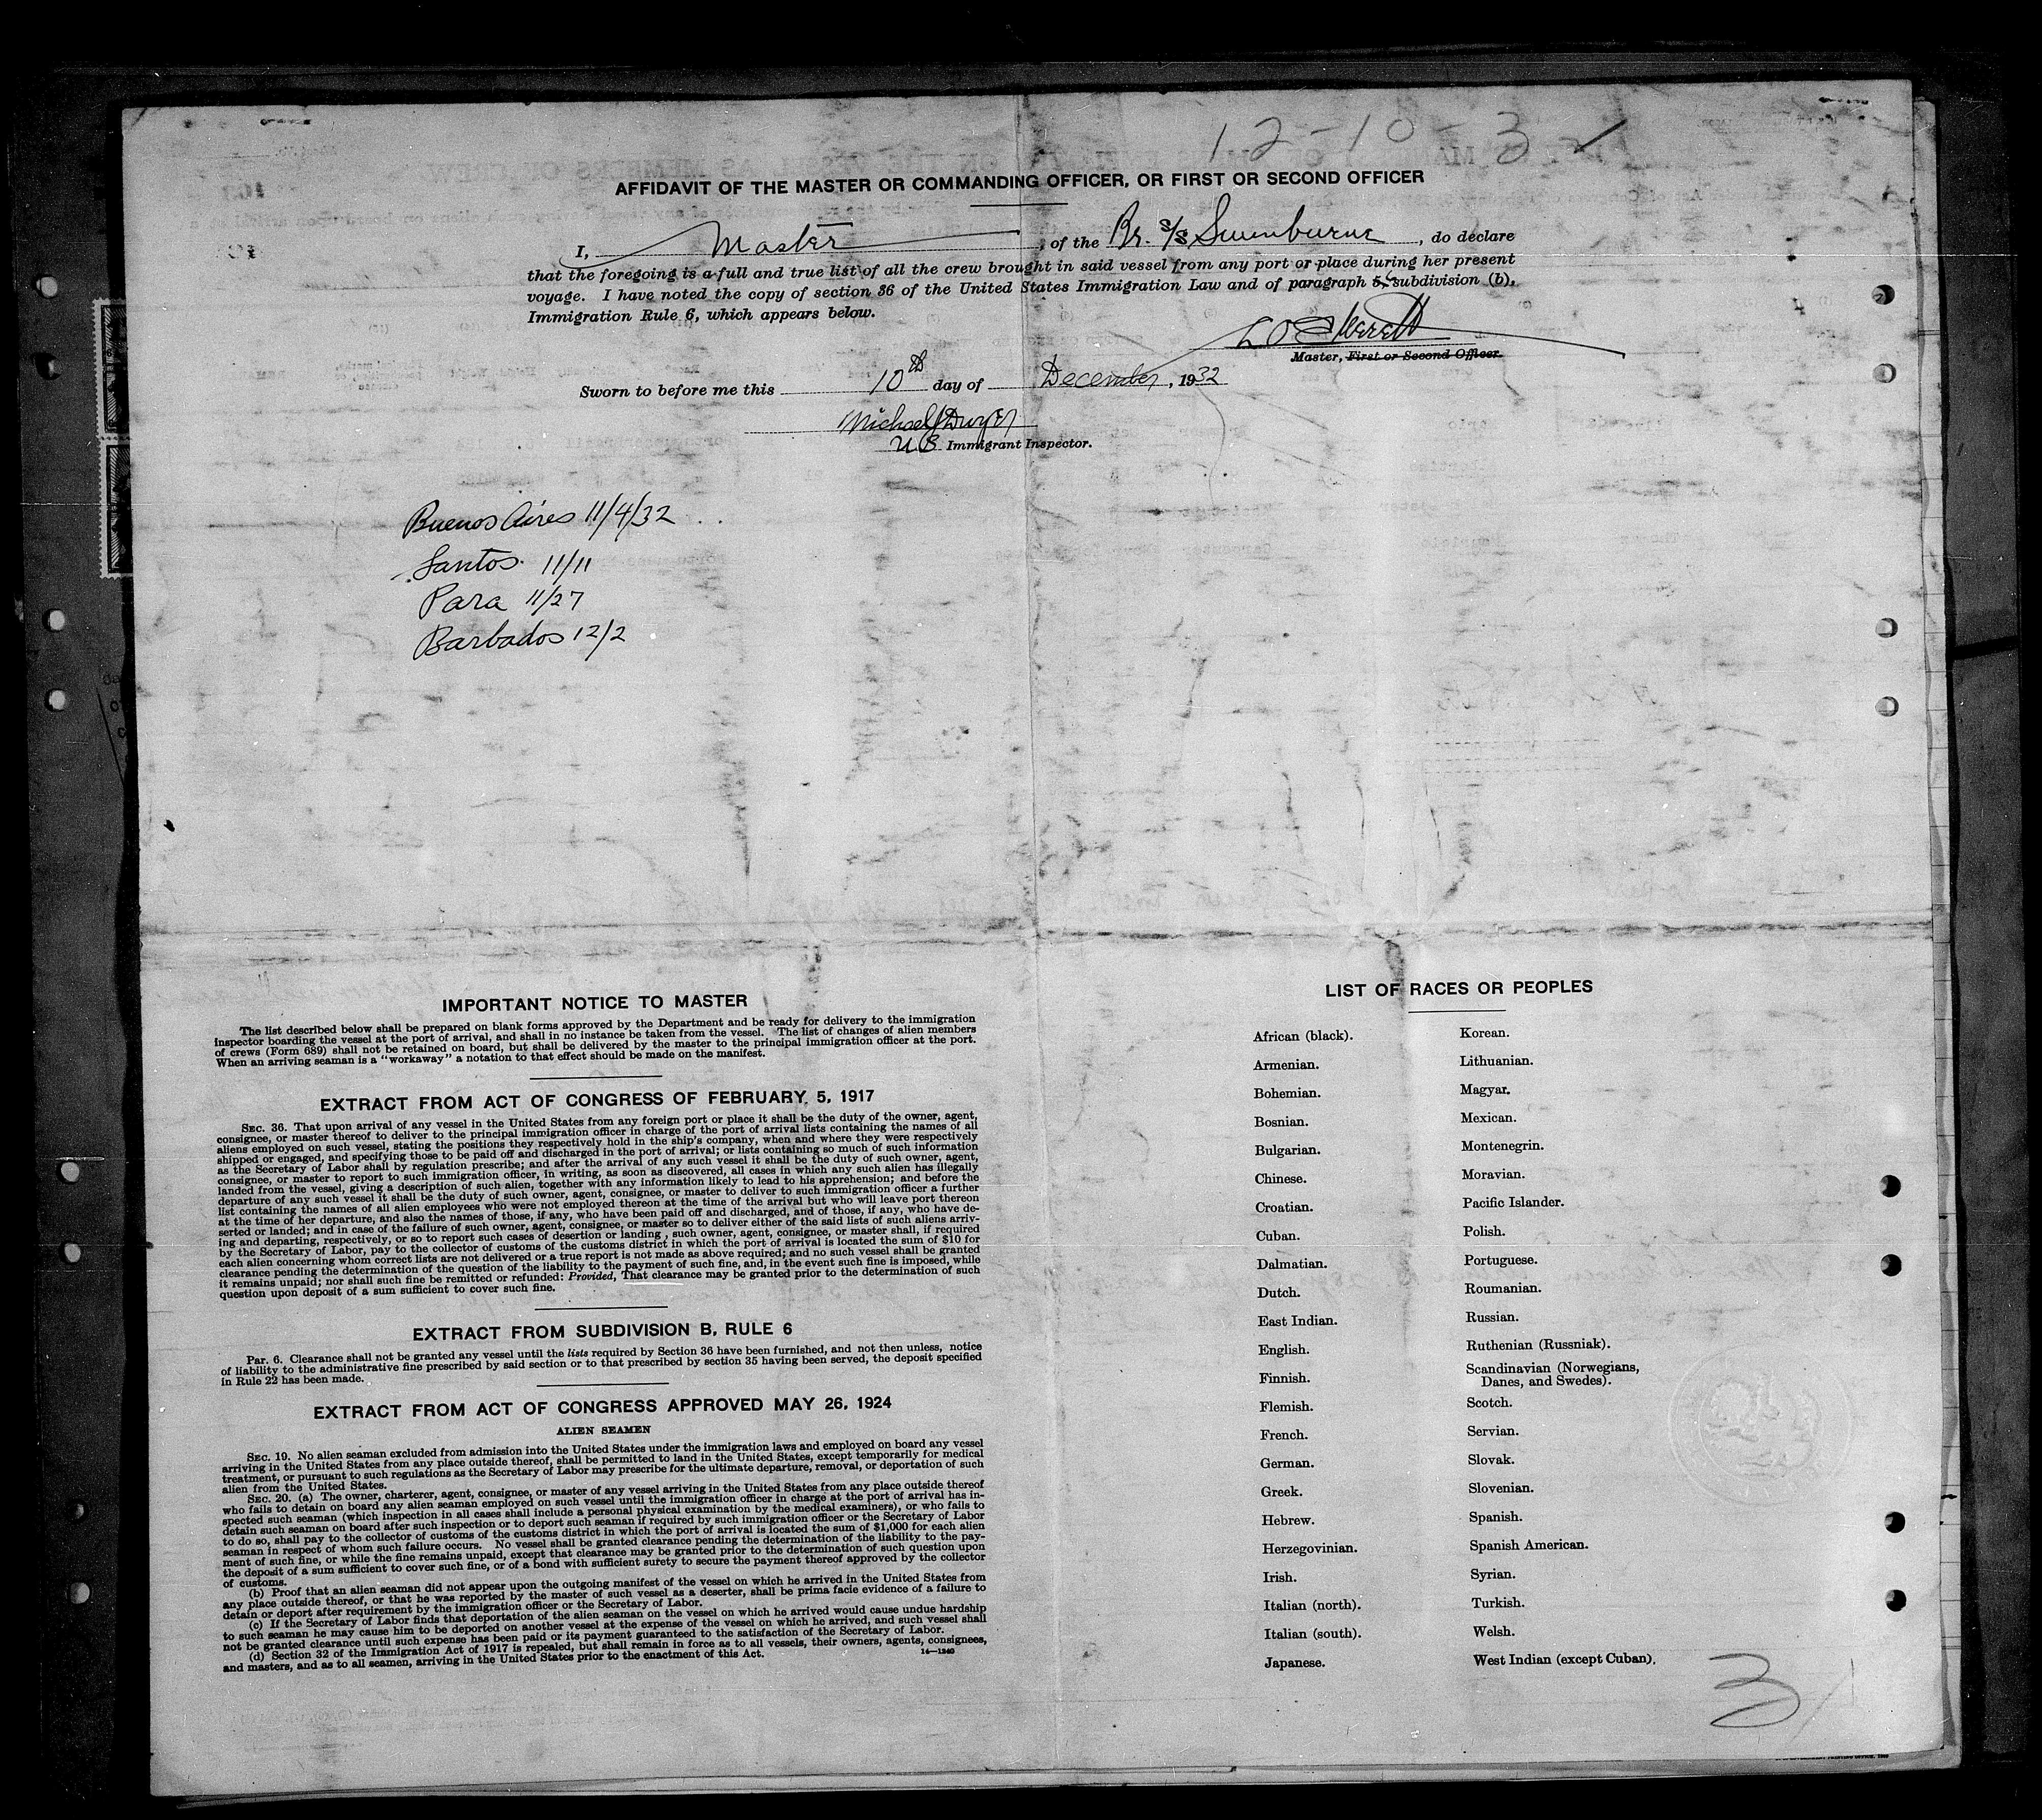 12-10-32
AFFIDAVIT OF THE MASTER OR COMMANDING OFFICER, OR FIRST OR SECOND OFFICER
I, Master, of the Br. S/S Swinburne, do declare
that the foregoing is a full and true list of all the crew brought in said vessel from any port or place during her present
voyage. I have noted the copy of section 36 of the United States Immigration Law and of paragraph 5, subdivision (b),
Immigration Rule 6, which appears below.
Master, First or Second Officer.
Sworn to before me this 10th day of December, 1932
Michael J Dwyer
U S Immigrant Inspector.
Buenos Aires 11/4/32
Santos 11/11
Para 11/27
Barbados 12/2
IMPORTANT NOTICE TO MASTER
The list described below shall be prepared on blank forms approved by the Department and be ready for delivery to the immigration
inspector boarding the vessel at the port of arrival, and shall in no instance be taken from the vessel. The list of changes of alien members
of crews (Form 689) shall not be retained on board, but shall be delivered by the master to the principal immigration officer at the port.
When an arriving seaman is a "workaway" a notation to that effect should be made on the manifest.
EXTRACT FROM ACT OF CONGRESS OF FEBRUARY 5, 1917
SEC. 36. That upon arrival of any vessel in the United States from any foreign port or place it shall be the duty of the owner, agent,
consignee, or master thereof to deliver to the principal immigration officer in charge of the port of arrival lists containing the names of all
aliens employed on such vessel, stating the positions they respectively hold in the ship's company, when and where they were respectively
shipped or engaged, and specifying those to be paid off and discharged in the port of arrival; or lists containing so much of such information
as the Secretary of Labor shall by regulation prescribe; and after the arrival of any such vessel it shall be the duty of such owner, agent,
consignee, or master to report to such immigration officer, in writing, as soon as discovered, all cases in which any such alien has illegally
landed from the vessel, giving a description of such alien, together with any information likely to lead to his apprehension; and before the
departure of any such vessel it shall be the duty of such owner, agent, consignee, or master to deliver to such immigration officer a further
list containing the names of all alien employees who were not employed thereon at the time of the arrival but who will leave port thereon
at the time of her departure, and also the names of those, if any, who have been paid off and discharged, and of those, if any, who have de-
serted or landed; and in case of the failure of such owner, agent, consignee, or master so to deliver either of the said lists of such aliens arriv-
ing and departing, respectively, or so to report such cases of desertion or landing, such owner, agent, consignee, or master shall, if required
by the Secretary of Labor, pay to the collector of customs of the customs district in which the port of arrival is located the sum of $10 for
each alien concerning whom correct lists are not delivered or a true report is not made as above required; and no such vessel shall be granted
clearance pending the determination of the question of the liability to the payment of such fine, and, in the event such fine is imposed, while
it remains unpaid; nor shall such fine be remitted or refunded: Provided, That clearance may be granted prior to the determination of such
question upon deposit of a sum sufficient to cover such fine.
EXTRACT FROM SUBDIVISION B, RULE 6
PAR. 6. Clearance shall not be granted any vessel until the lists required by Section 36 have been furnished, and not then unless, notice
of liability to the administrative fine prescribed by said section or to that prescribed by section 35 having been served, the deposit specified
in Rule 22 has been made.
EXTRACT FROM ACT OF CONGRESS APPROVED MAY 26, 1924
ALIEN SEAMEN
SEC. 19. No alien seaman excluded from admission into the United States under the immigration laws and employed on board any vessel
arriving in the United States from any place outside thereof, shall be permitted to land in the United States, except temporarily for medical
treatment, or pursuant to such regulations as the Secretary of Labor may prescribe for the ultimate departure, removal, or deportation of such
alien from the United States.
SEC. 20. (a) The owner, charterer, agent, consignee, or master of any vessel arriving in the United States from any place outside thereof
who fails to detain on board any alien seaman employed on such vessel until the immigration officer in charge at the port of arrival has in-
spected such seaman (which inspection in all cases shall include a personal physical examination by the medical examiners), or who fails to
detain such seaman on board after such inspection or to deport such seaman if required by such immigration officer or the Secretary of Labor
to do so, shall pay to the collector of customs of the customs district in which the port of arrival is located the sum of $1,000 for each alien
seaman in respect of whom such failure occurs. No vessel shall be granted clearance pending the determination of the liability to the pay-
ment of such fine, or while the fine remains unpaid, except that clearance may be granted prior to the determination of such question upon
the deposit of a sum sufficient to cover such fine, or of a bond with sufficient surety to secure the payment thereof approved by the collector
of customs.
(b) Proof that an alien seaman did not appear upon the outgoing manifest of the vessel on which he arrived in the United States from
any place outside thereof, or that he was reported by the master of such vessel as a deserter, shall be prima facie evidence of a failure to
detain or deport after requirement by the immigration officer or the Secretary of Labor.
(c) If the Secretary of Labor finds that deportation of the alien seaman on the vessel on which he arrived would cause undue hardship
to such seaman he may cause him to be deported on another vessel at the expense of the vessel on which he arrived, and such vessel shall
not be granted clearance until such expense has been paid or its payment guaranteed to the satisfaction of the Secretary of Labor.
(d) Section 32 of the Immigration Act of 1917 is repealed, but shall remain in force as to all vessels, their owners, agents, consignees,
and masters, and as to all seamen, arriving in the United States prior to the enactment of this Act.
14—1240
LIST OF RACES OR PEOPLES
African (black).
Armenian.
Bohemian.
Bosnian.
Bulgarian.
Chinese.
Croatian.
Cuban.
Dalmatian.
Dutch.
East Indian.
English.
Finnish.
Flemish.
French.
German.
Greek.
Hebrew.
Herzegovinian.
Irish.
Italian (north).
Italian (south).
Japanese.
Korean.
Lithuanian.
Magyar.
Mexican.
Montenegrin.
Moravian.
Pacific Islander.
Polish.
Portuguese.
Roumanian.
Russian.
Ruthenian (Russniak).
Scandinavian (Norwegians,
Danes, and Swedes).
Scotch.
Servian.
Slovak.
Slovenian.
Spanish.
Spanish American.
Syrian.
Turkish.
Welsh.
West Indian (except Cuban).
3